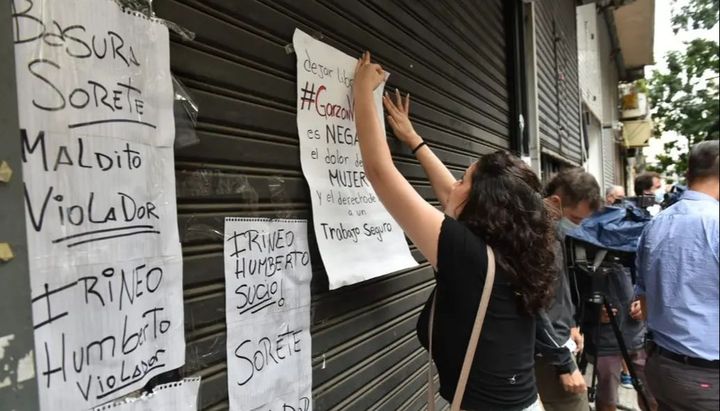 BASURA
SORETE
MALDITO
VIOLADOR
IRINEO
Humberto
VIOLADOR
IRINEO
HUMBERTO
SUCIO!
SORETE
dejar
es
el dolor de
MUJER
y el derecho de
a un
Trabajo Seguro